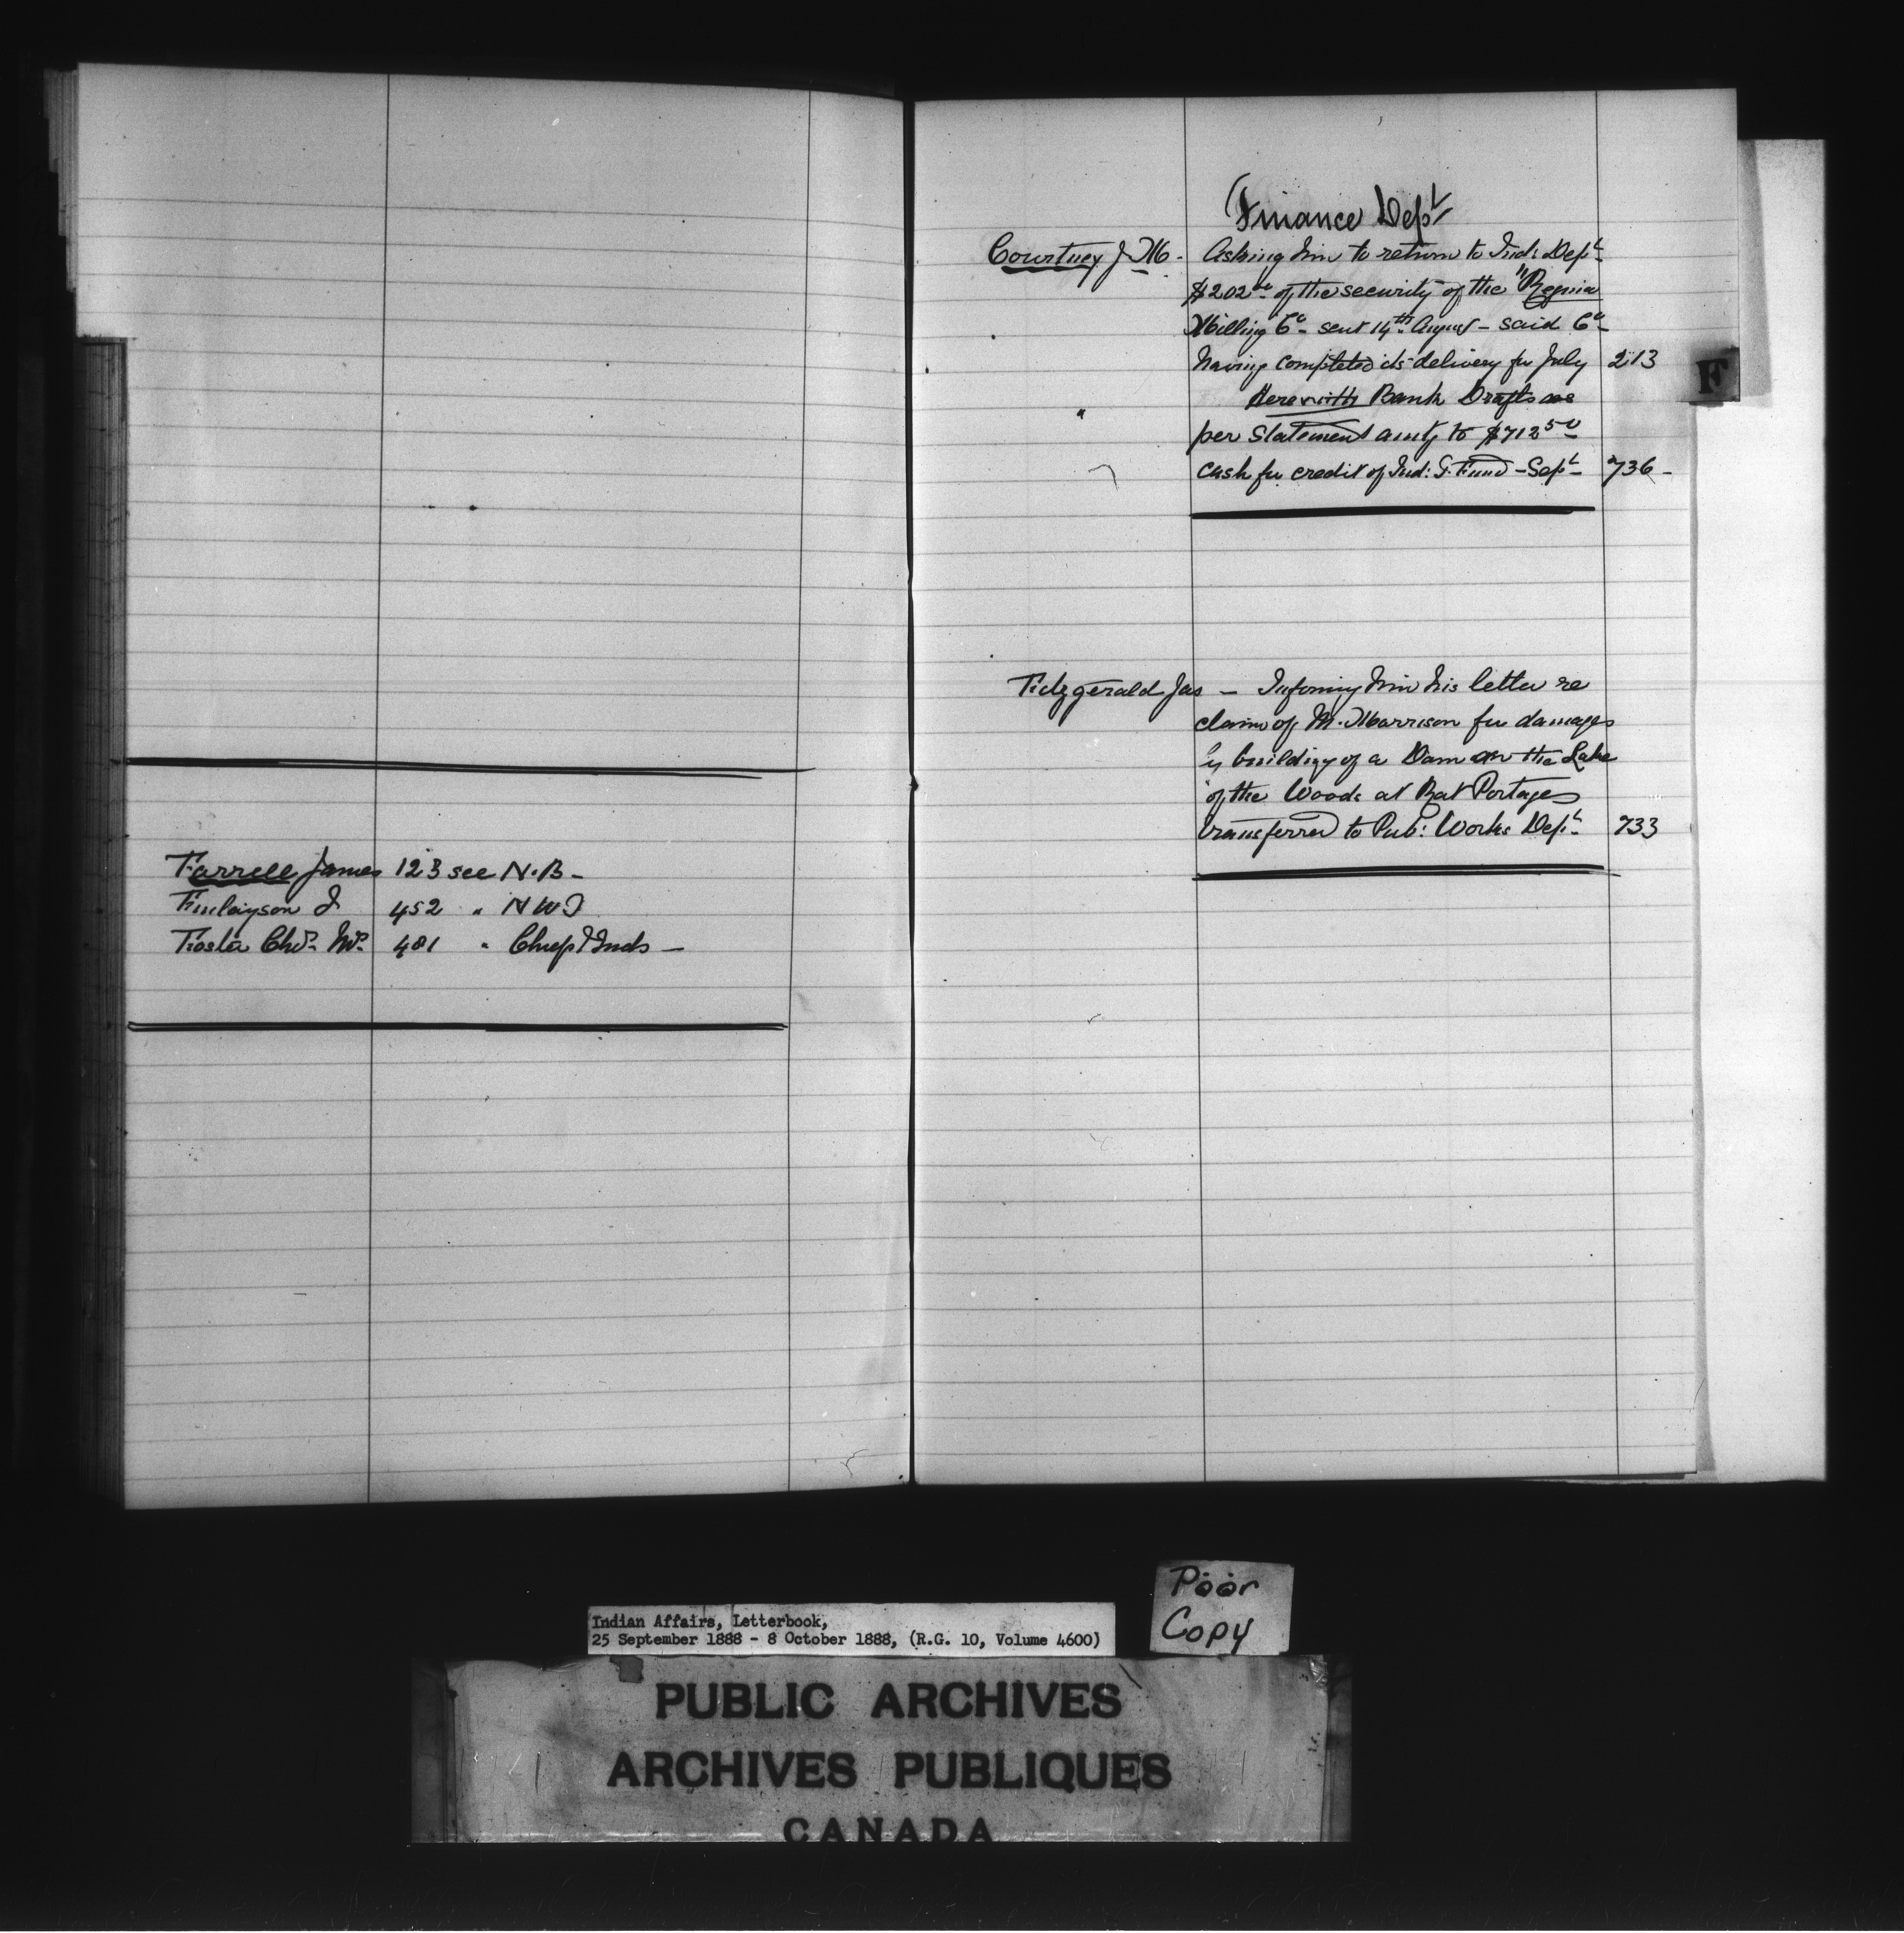 Farrell James 123 see N.B -
Finlayson J 452 " N W T
Foster Chs. Wm. 481 " Chief & Inds -
Finance Dept
Courtney J M - Asking him to return to Ind: Dept
$202 of the security of the "Regina
Milling Co - sent 14th August - said Co -
having completed its delivery for July 213
" Herewith Bank Drafts as
per Statement amtg to $712 50
cash for credit of Ind: G. Fund - Sept - 736 -
Fitzgerald Jas - Informing him his letter re
claim of M. Morrison for damages
by building of a Dam on the Lake
of the Woods at Rat Portage
transferred to Pub: Works Dept - 733
F
Poor
Copy
Indian Affairs, Letterbook,
25 September 1888 - 8 October 1888, (R.G. 10, Volume 4600)
PUBLIC ARCHIVES
ARCHIVES PUBLIQUES
CANADA